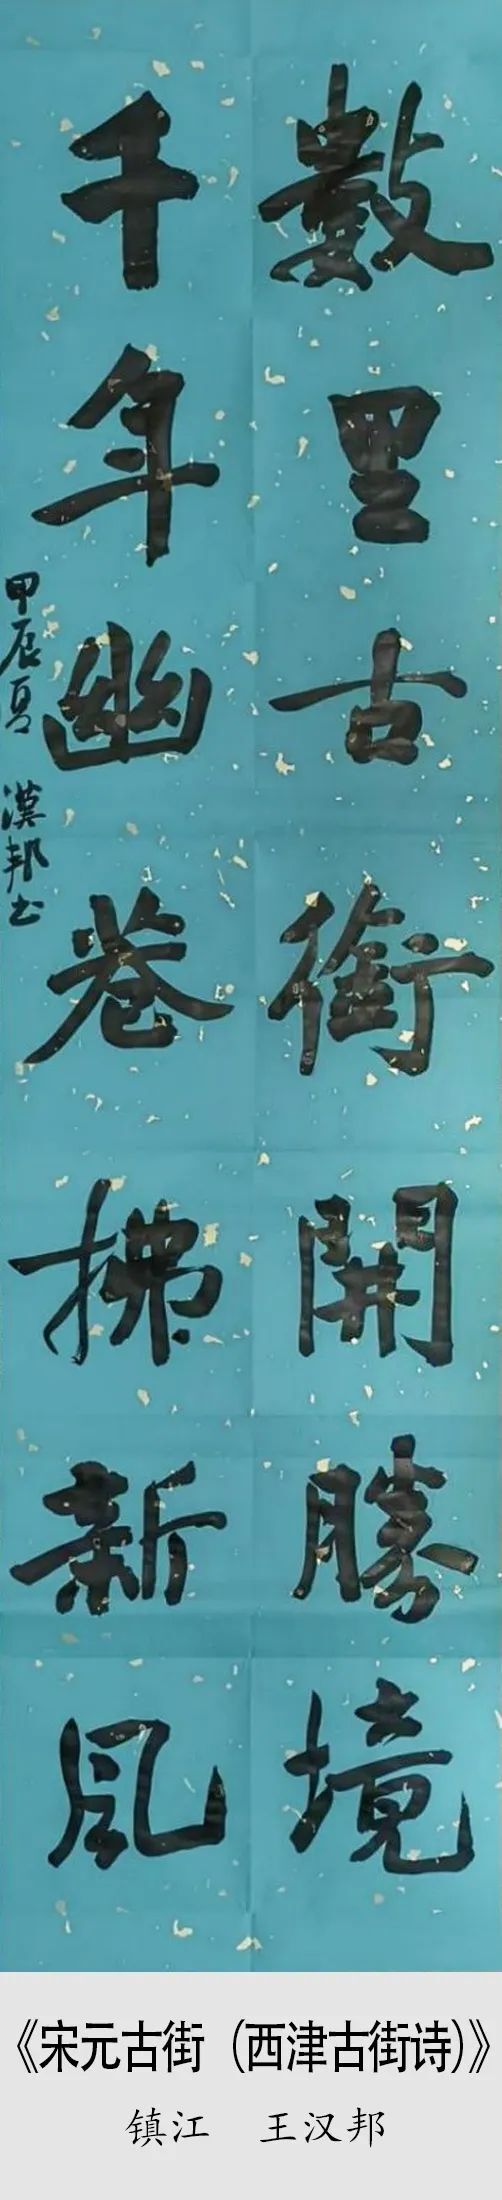 數里古街開勝境
千年幽巷拂新風
甲辰夏 漢邦书
《宋元古街（西津古街诗）》
镇江 王汉邦